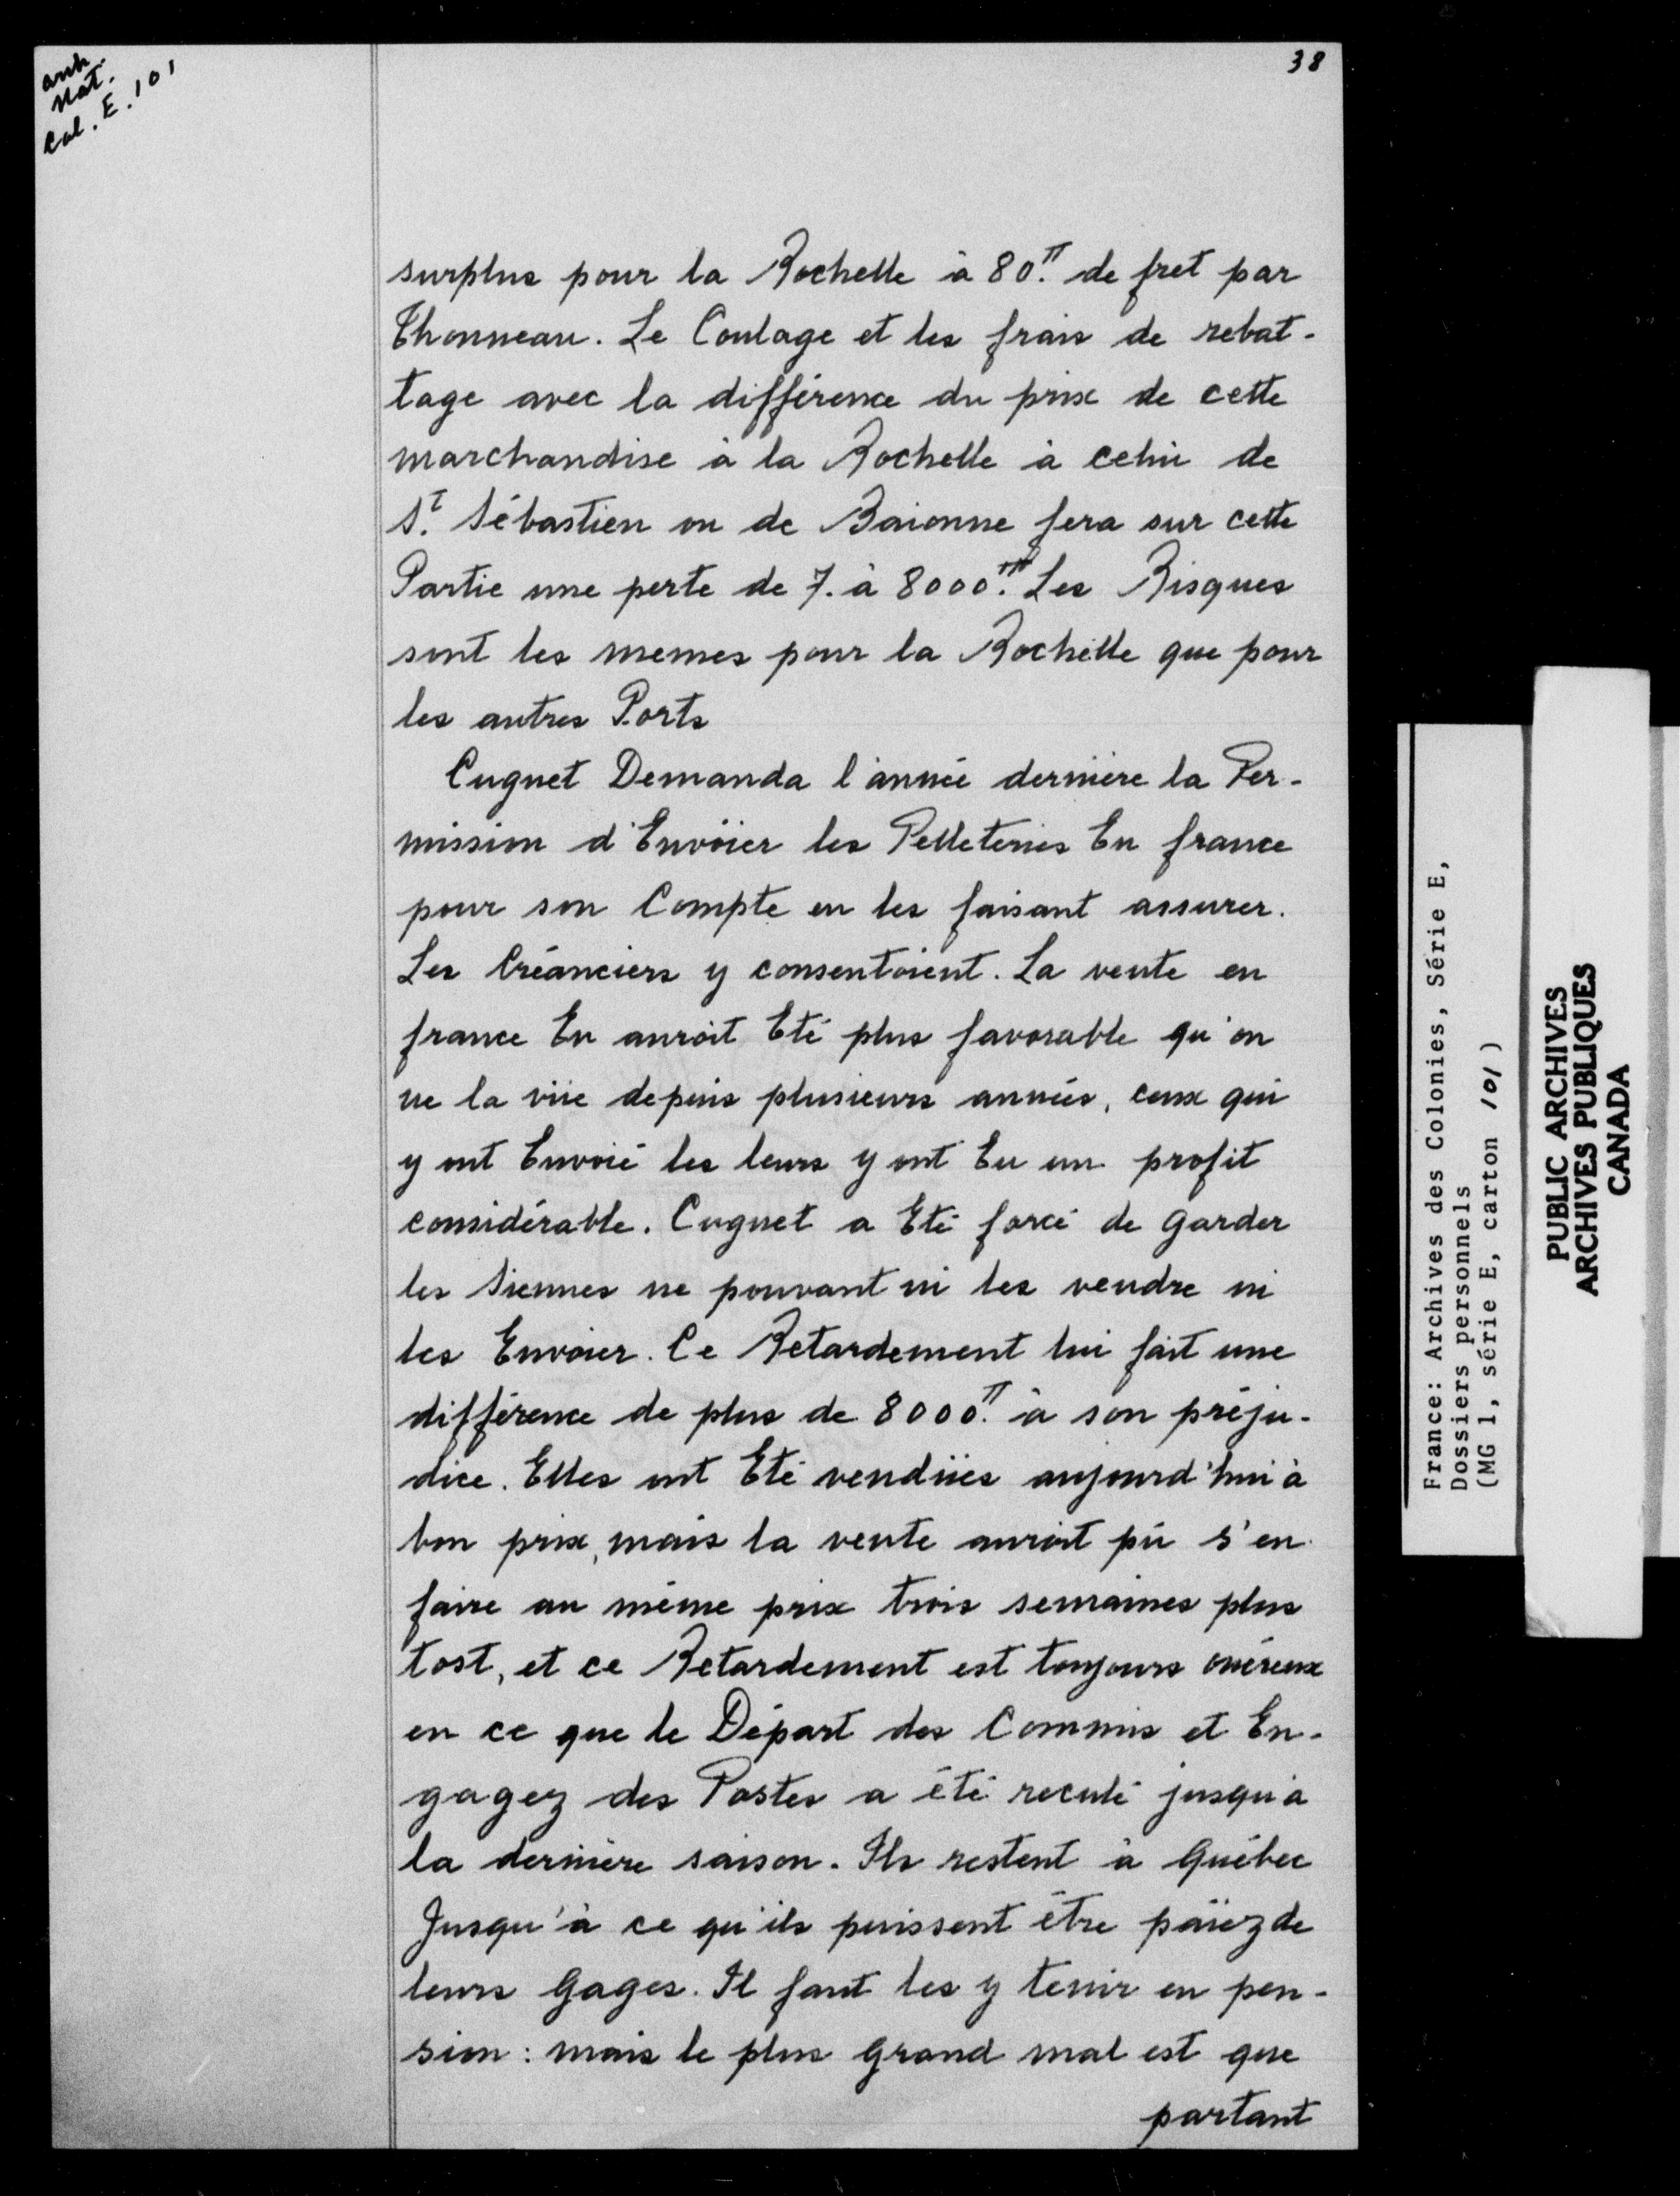 arch.
Nat.
Col. E. 101
38
surplus pour la Rochelle à 80.ᵗᵗ de fret par
Thonneau. Le Coulage et les frais de rebat-
tage avec la différence du prix de cette
marchandise à la Rochelle à celui de
S.ᵗ Sébastien ou de Baionne fera sur cette
Partie une perte de 7. à 8000.ᵗᵗ Les Risques
sont les memes pour la Rochelle que pour
les autres Ports
Cuguet Demanda l'année dernière la Per-
mission d'Envoïer les Pelleteries En france
pour son Compte en les faisant assurer.
Les Créanciers y consentoient. La vente en
france En auroit Eté plus favorable qu'on
ne la vüe depuis plusieurs années, ceux qui
y ont Envoié les leurs y ont Eu un profit
considérable. Cuguet a Eté forcé de garder
les Siennes ne pouvant ni les vendre ni
les Envoier. Ce Retardement lui fait une
différence de plus de 8000.ᵗᵗ à son préju-
dice. Elles ont Eté vendües aujourd'hui à
bon prix, mais la vente auroit pû s'en
faire au même prix trois semaines plus
tost, et ce Retardement est toujours onéreux
en ce que le Départ des Commis et En-
gagez des Postes a été reculé jusqu'a
la dernière saison. Ils restent à Québec
Jusqu'à ce qu'ils puissent être païez de
leurs Gages. Il faut les y tenir en pen-
sion : mais le plus grand mal est que
partant
France: Archives des Colonies, Série E,
Dossiers personnels
(MG 1, série E, carton 101)
PUBLIC ARCHIVES
ARCHIVES PUBLIQUES
CANADA